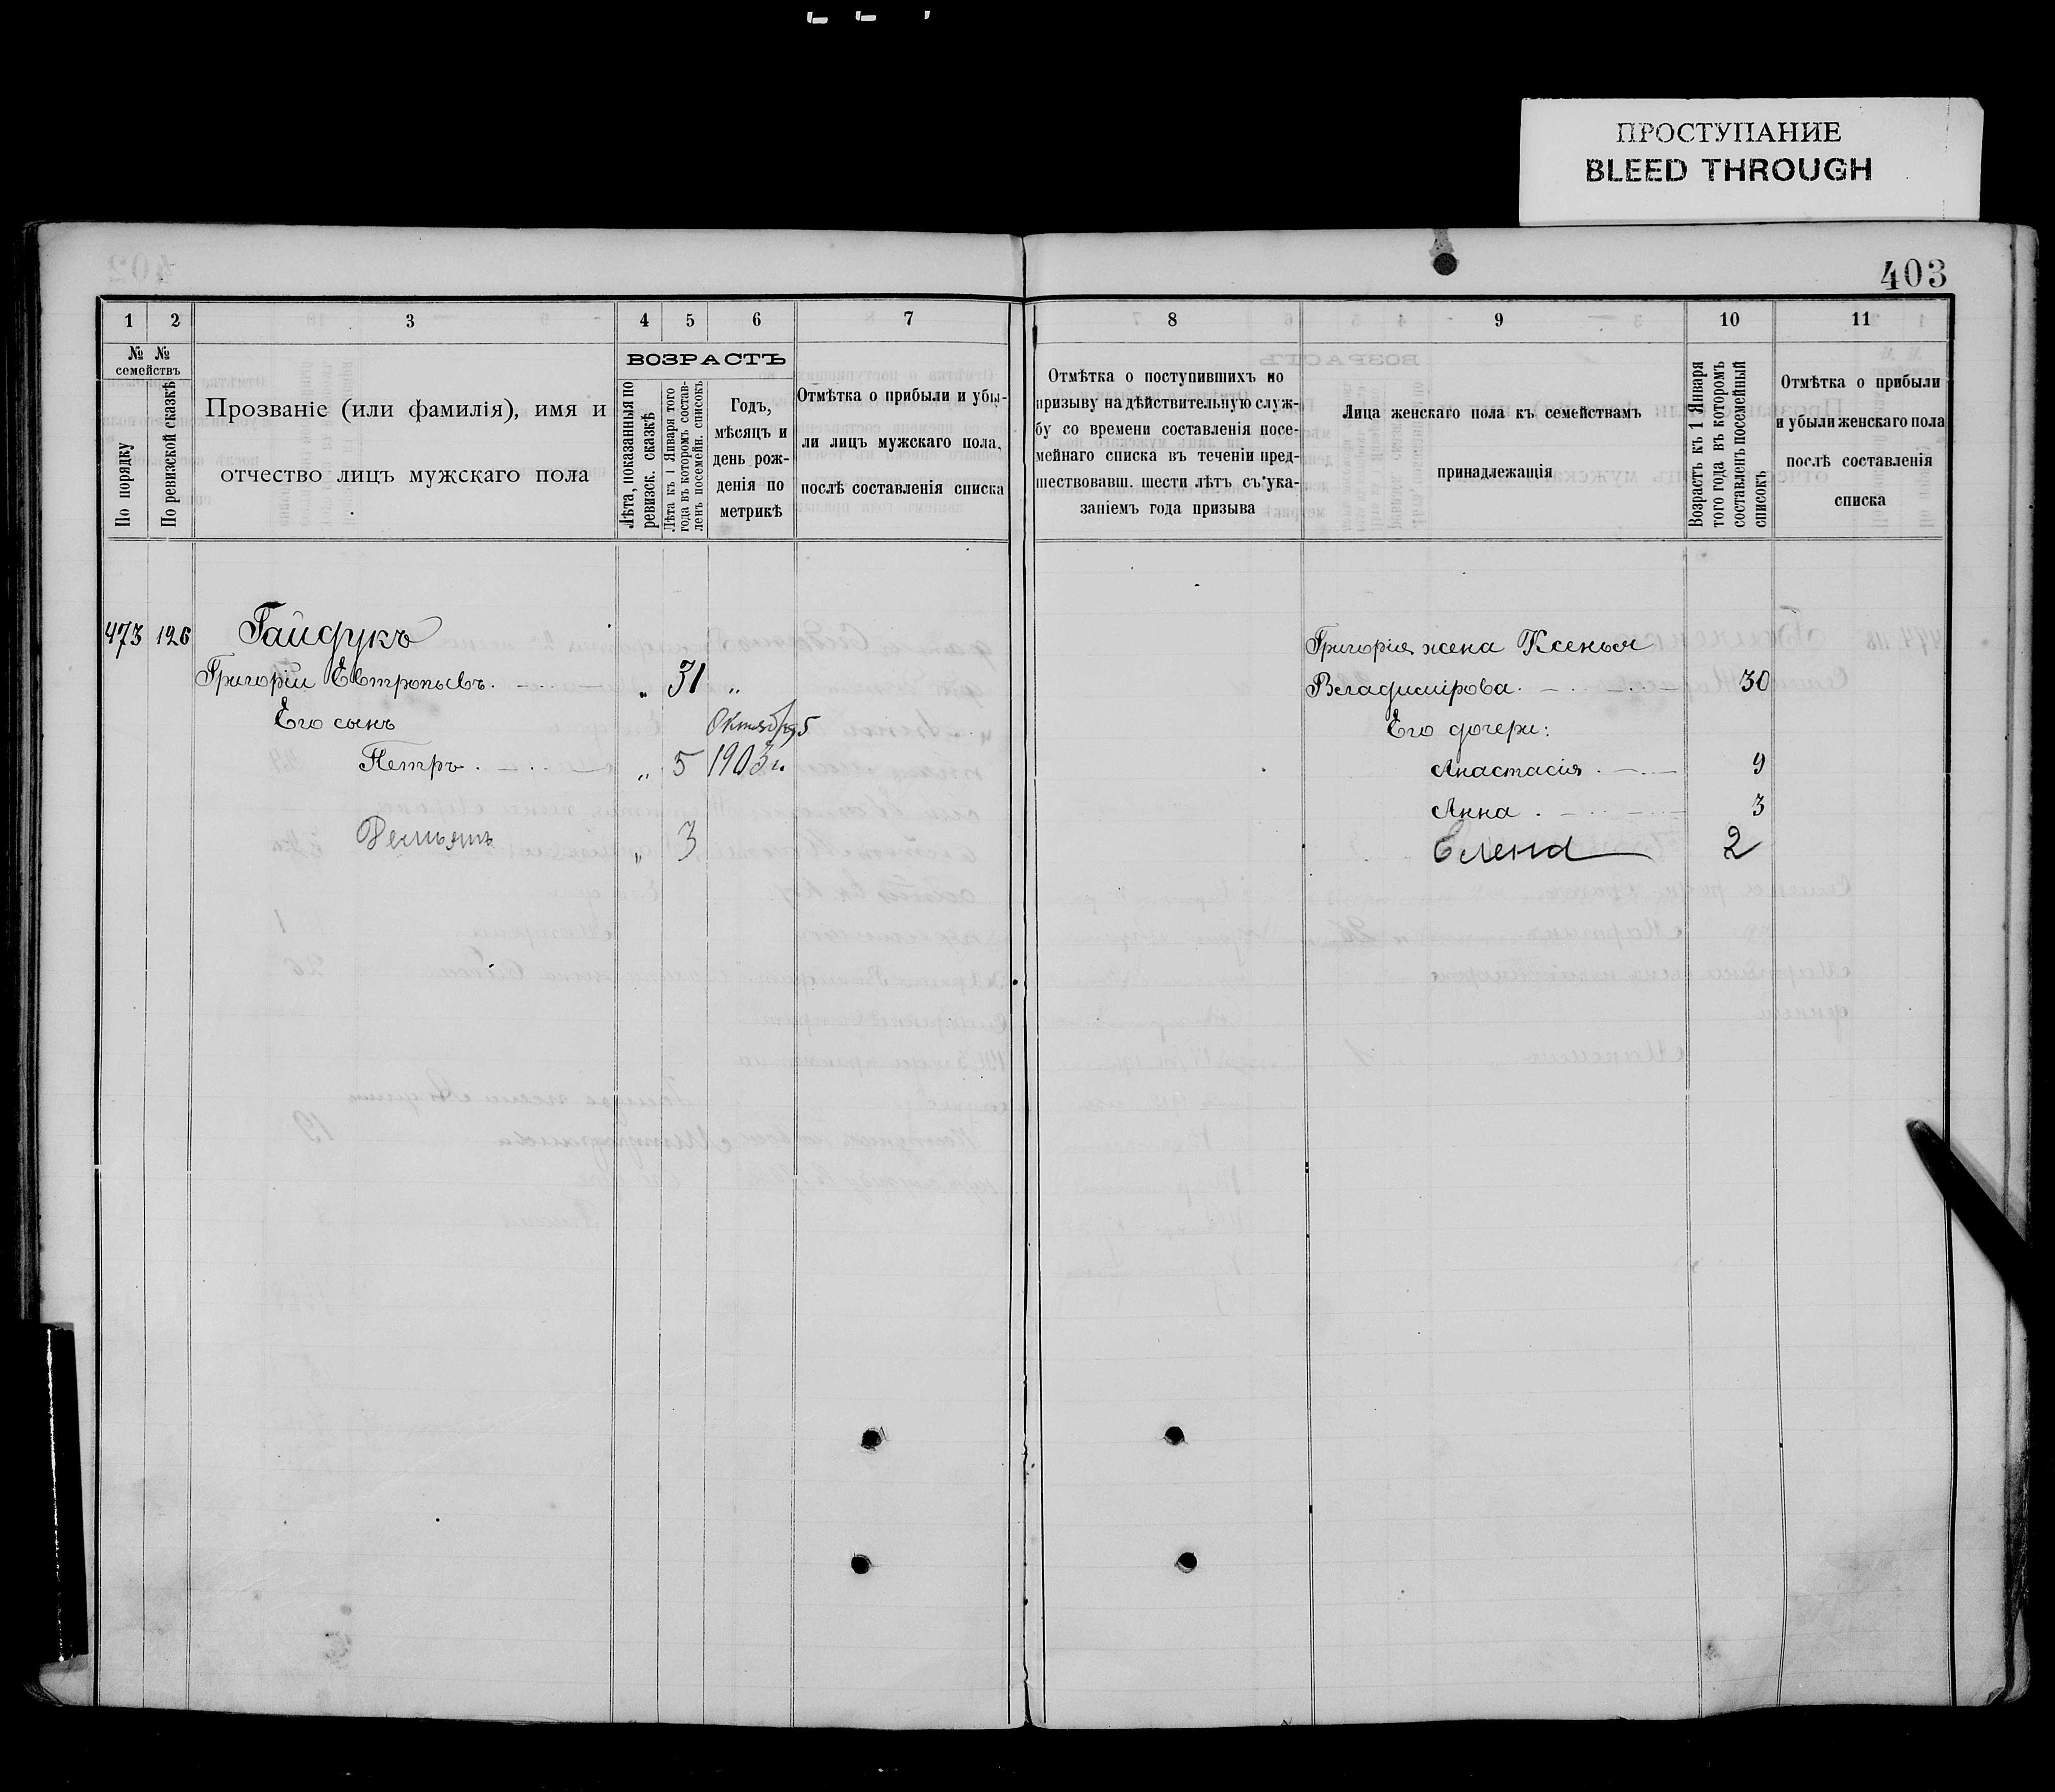 ПРОСТУПАНИЕ
BLEED THROUGH
403
1 2 3 4 5 6 7
№ № семействъ
По порядку
По ревизской сказкѣ
Прозваніе (или фамилія), имя и
отчество лицъ мужскаго пола
ВОЗРАСТЪ
Лѣта, показанныя по
ревизск. сказкѣ
Лѣта къ 1 Января того
года въ которомъ состав-
ленъ посемейн. списокъ
Годъ,
мѣсяцъ и
день рож-
денія по
метрикѣ
Отмѣтка о прибыли и убы-
ли лицъ мужскаго пола,
послѣ составленія списка
473 126 Гайдукъ
Григорій Евтропьевъ. „ 31 „
Его сынъ Октября 5
Петръ. „ 5 1903 г.
„ 3
8 9 10 11
Отмѣтка о поступившихъ по
призыву на дѣйствительную служ-
бу со времени составленія посе-
мейнаго списка въ теченіи пред-
шествовавш. шести лѣтъ съ ука-
заніемъ года призыва
Лица женскаго пола къ семействамъ
принадлежащія
Возрастъ къ 1 Января
того года въ которомъ
составленъ посемейный
списокъ
Отмѣтка о прибыли
и убыли женскаго пола
послѣ составленія
списка
Григорія жена Ксенья
Владимірова. 30
Его дочери:
Анастасія. 9
Анна. 3
Елена 2